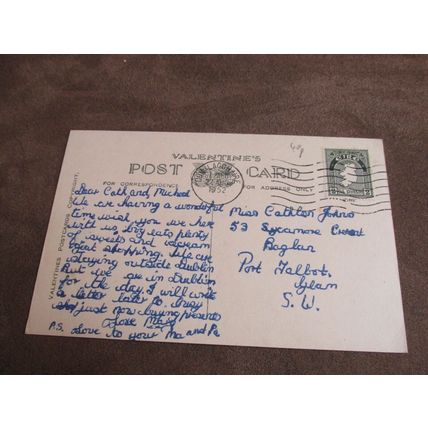 40p
VALENTINE'S
POST CARD
FOR CORRESPONDENCE
FOR ADDRESS ONLY
VALENTINES POSTCARDS COPYRIGHT.
1952
Dear Cath and Micheal
We are having a wonderful
time wish you were here
with us, lots plenty
of sweets and icecream
great shopping. We are
staying outside Dublin
But we are in Dublin
for the day. I will write
a letter later so busy
just now buying presents
Love
P.S. Love to your Ma and Pa
Miss Cathlen Johns
53 Sycamore Crescent
Baglan
Port Talbot.
Glam
S. W.